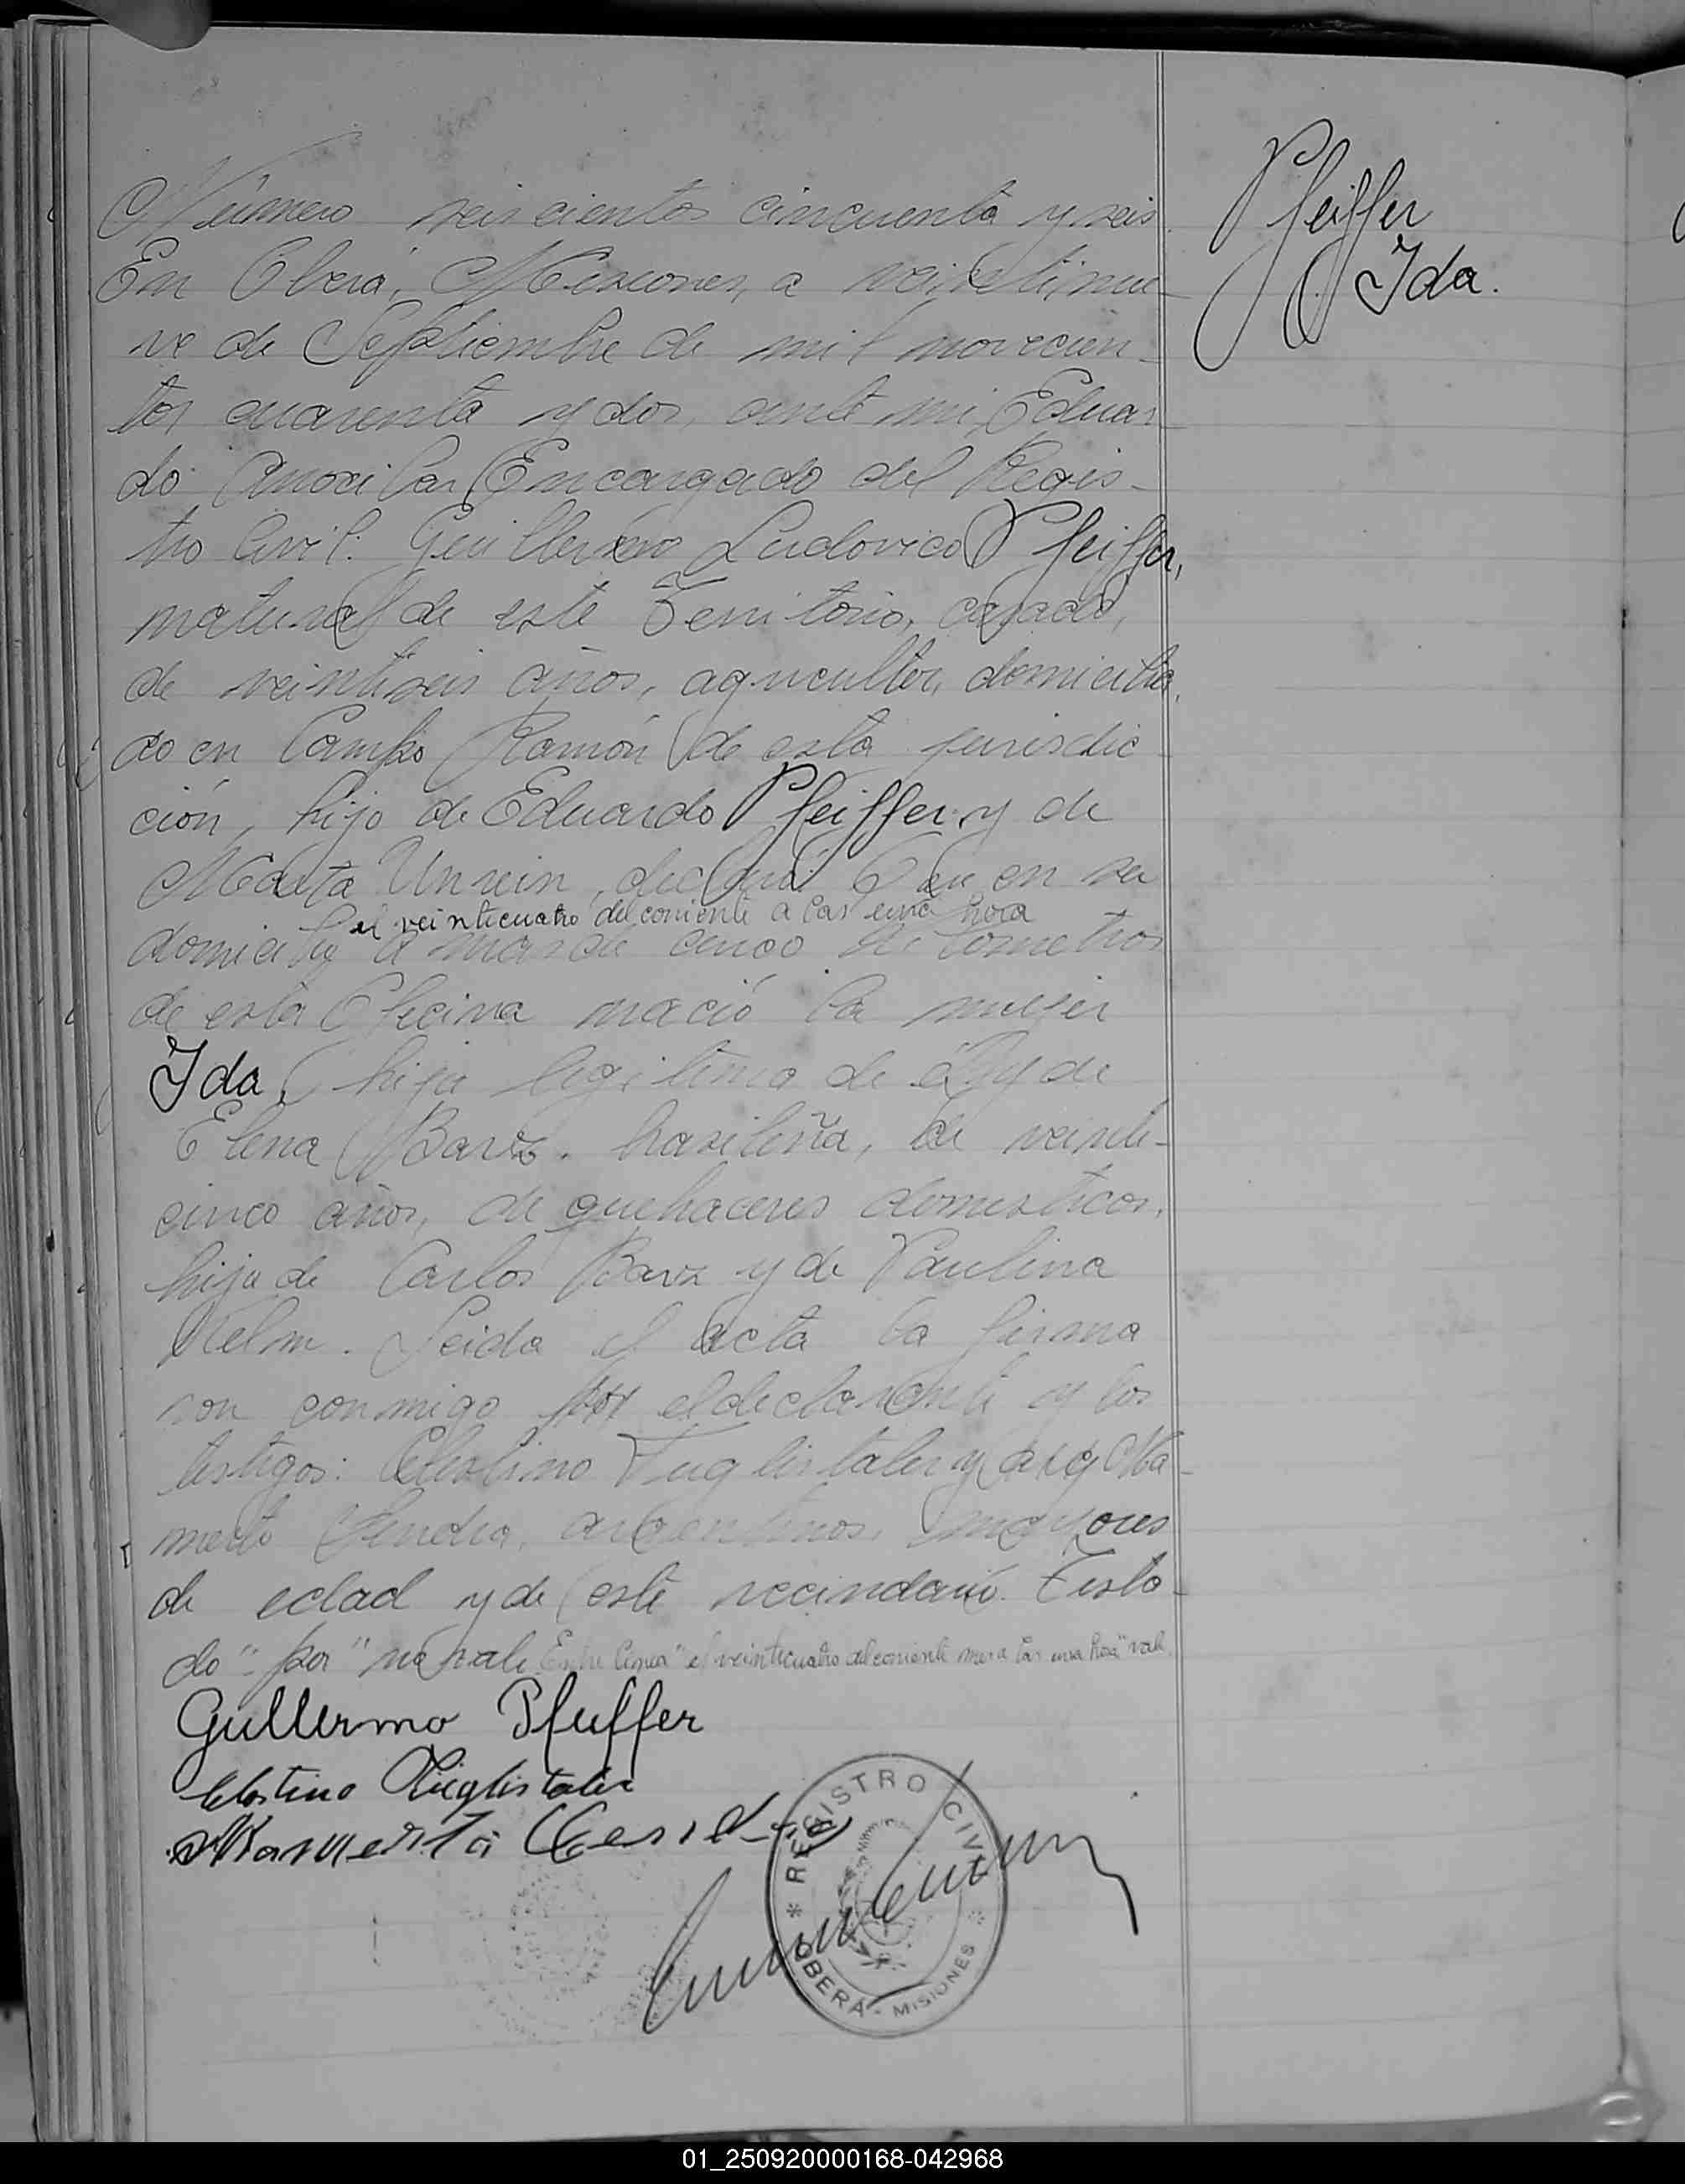 Pfeiffer
Ida.
Número seiscientos cincuenta y seis
En Oberá, Misiones, a veintinue-
ve de Septiembre de mil novecien-
tos cuarenta y dos, ante mi, Eduar-
do Encargado del Regis-
tro Civil: Guillermo Ludovico Pfeiffer,
natural de este Territorio, casado,
de veintiseis años, agricultor, domicilia
do en Campo Ramón de esta jurisdic
ción, hijo de Eduardo Pfeiffer y de
Marta Unrein, declaró: Que en su
el veinticuatro del corriente a las una hora
domicilio a mas de cinco kilometros
de esta Oficina nació la mujer
Ida, hija legitima de él y de
Elena Barz, brasileña, de veinti-
cinco años, de quehaceres domesticos,
hija de Carlos Barz y de Paulina
Kelm. Leida el acta la firma
ron conmigo por el declarante y los
testigos: Celestino Fuglistaler y Ma-
merto argentinos, mayores
de edad y de este vecindario. Testa-
do "por" no vale. Entre linea "el veinticuatro del corriente a las una hora" vale
Guillermo Pfeiffer
Celestino Füglistaler
Mamerto
REGISTRO CIVIL
OBERÁ - MISIONES
01_250920000168-042968